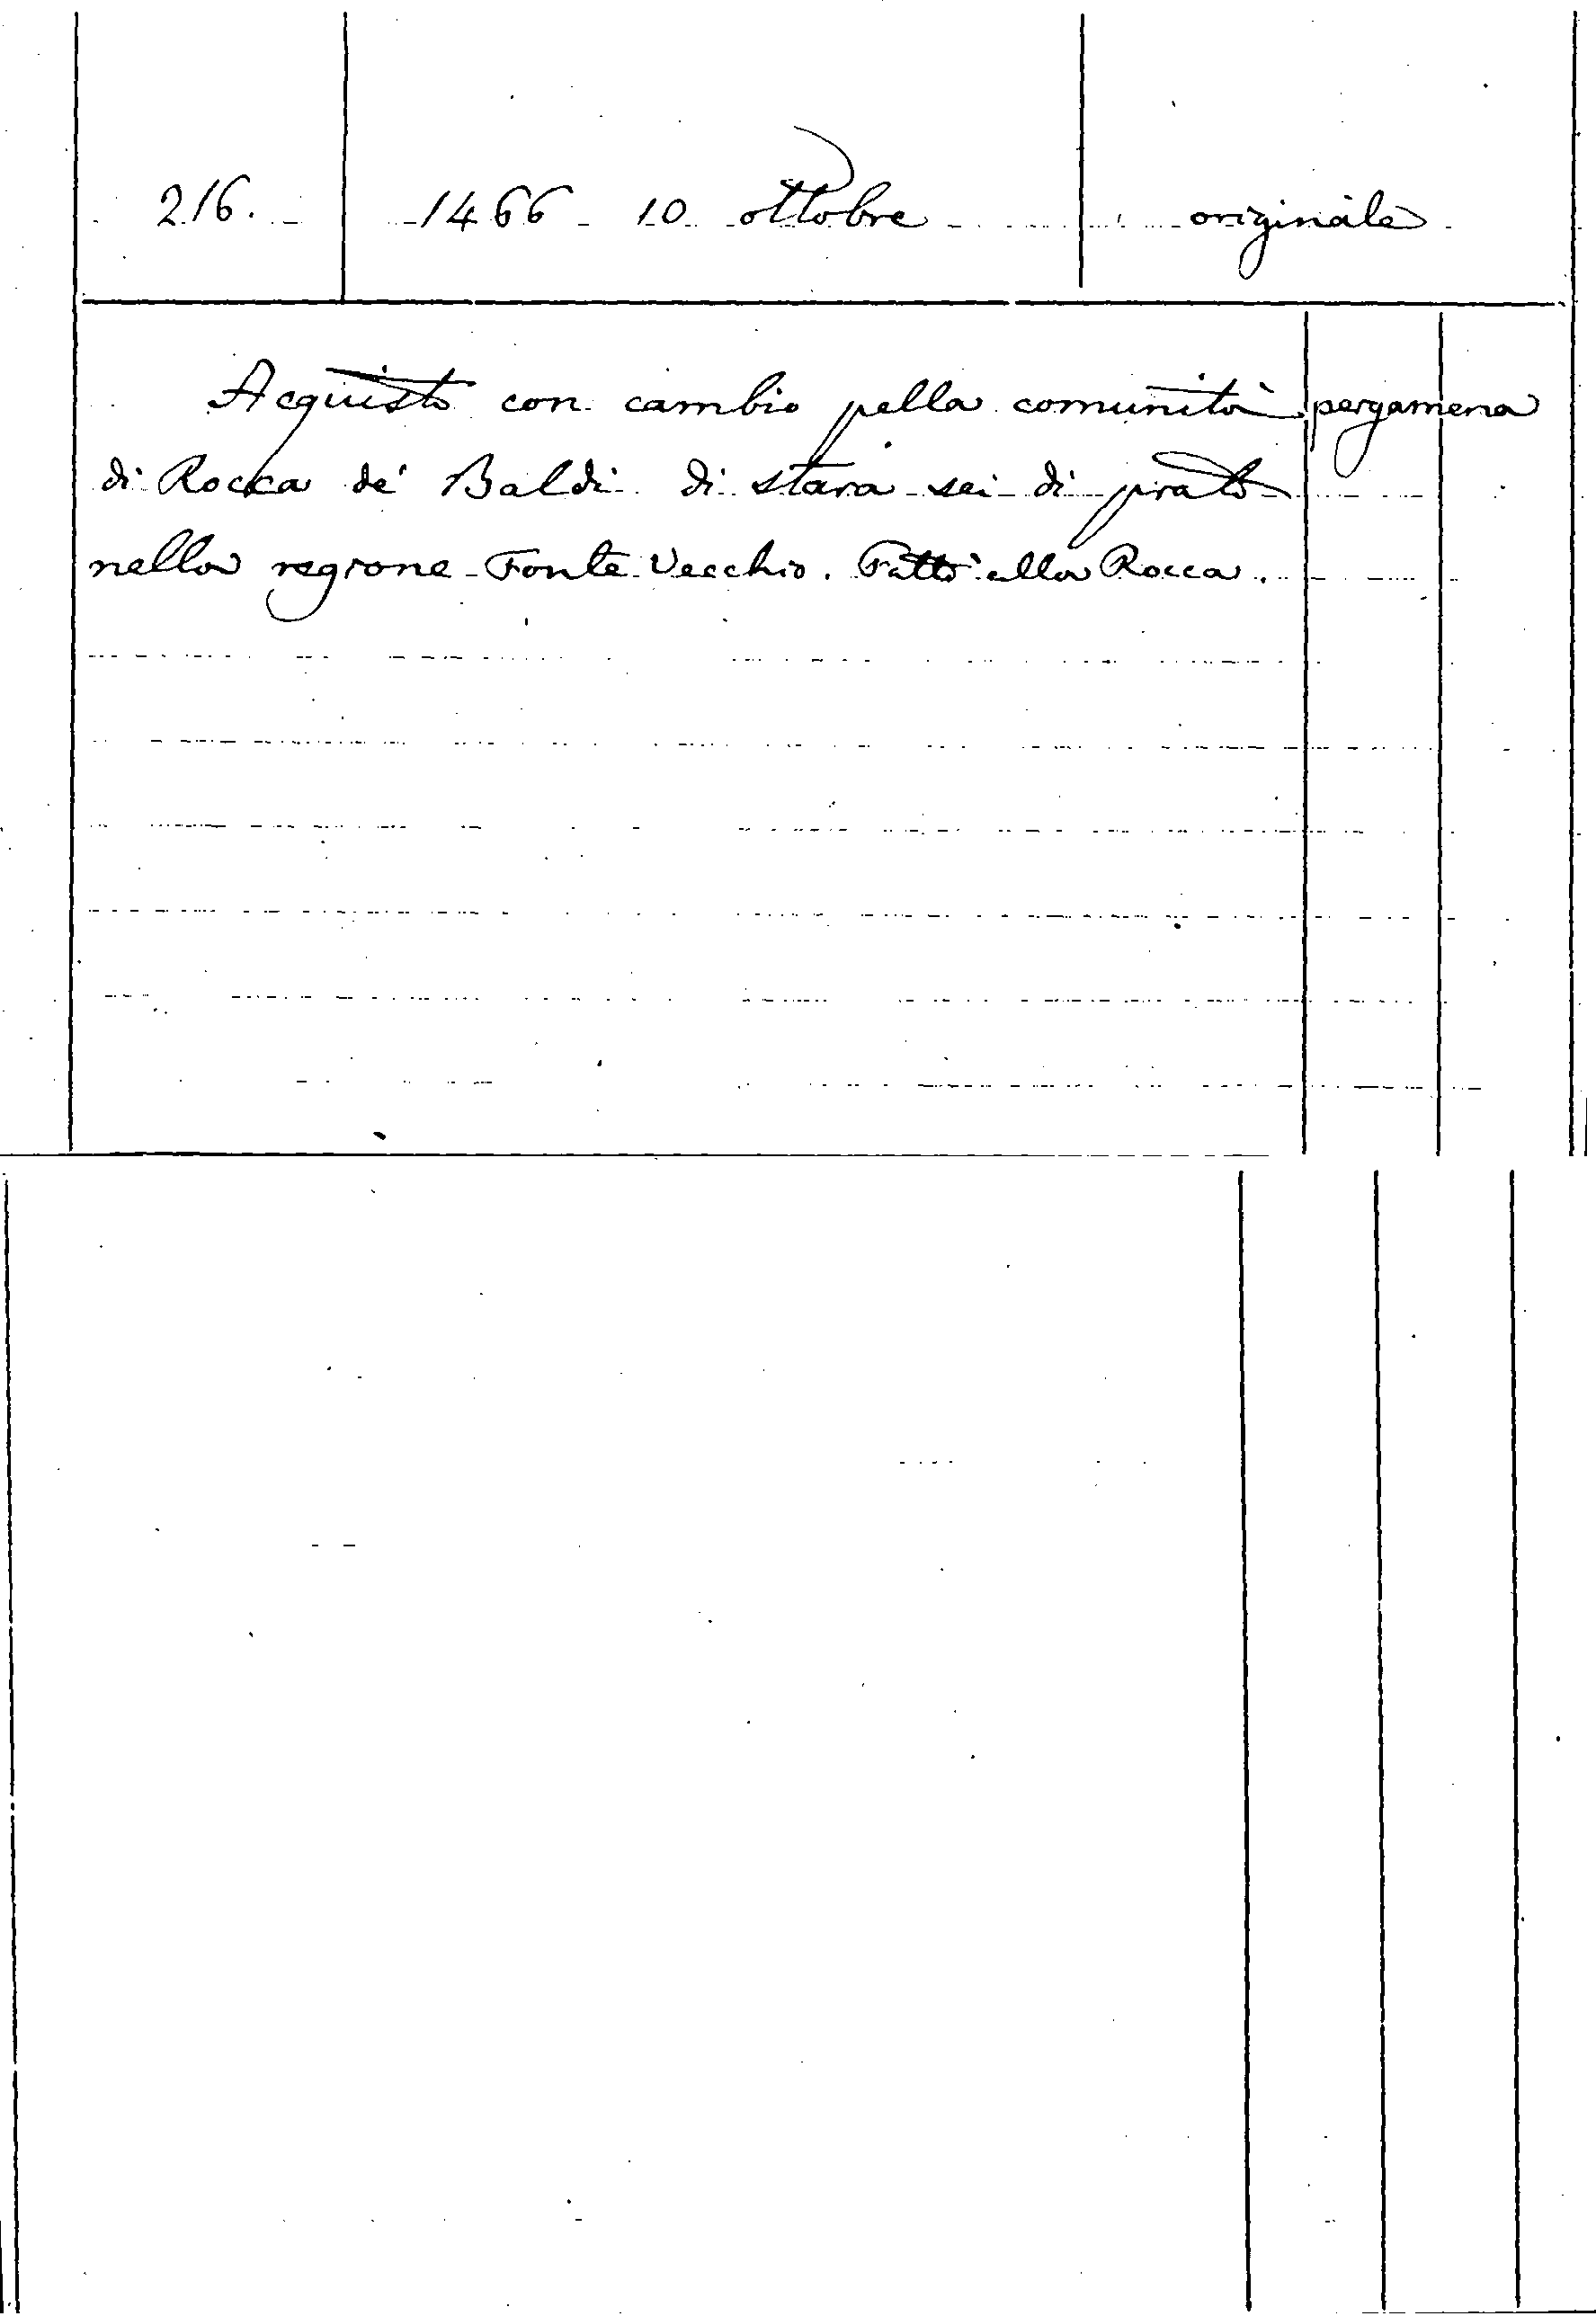 216. 1466 10 ottobre originale
Acquisto con cambio pella comunità pergamena
di Rocca de' Baldi di stara sei di prato
nella regione Fonte Vecchio. Fatto alla Rocca.